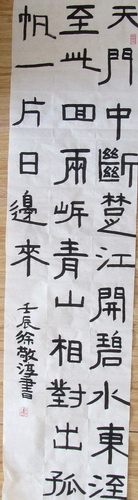 天門中斷楚江開碧水東流
至此回兩岸青山相對出孤
帆一片日邊來
壬辰徐敬淳書